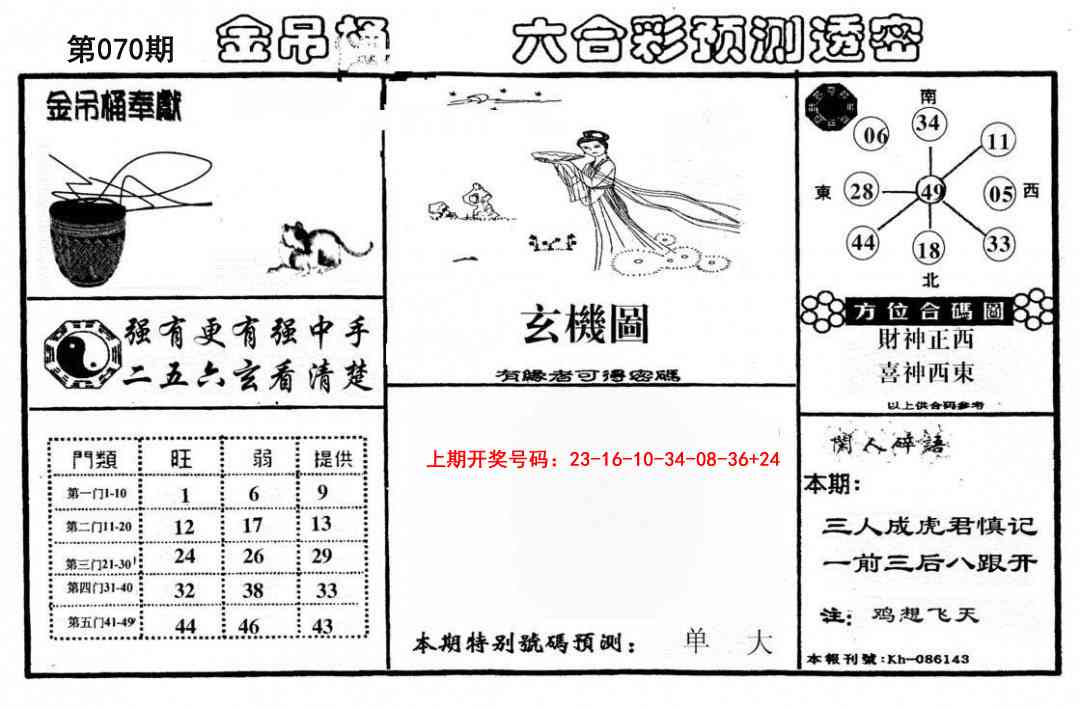 第070期 金吊桶 六合彩预测透密
金吊桶奉獻
强有更有强中手
二五六玄看清楚
門類 旺 弱 提供
第一门1-10 1 6 9
第二门11-20 12 17 13
第三门21-30 24 26 29
第四门31-40 32 38 33
第五门41-49 44 46 43
玄機圖
有緣者可得密碼
上期开奖号码：23-16-10-34-08-36+24
本期特别號碼預測： 单 大
南
06 34 11
東 28 49 05 西
44 18 33
北
方位合碼圖
財神正西
喜神西東
以上供合码参考
閑人碎語
本期：
三人成虎君慎记
一前三后八跟开
注：鸡想飞天
本報刊號:Kh-086143